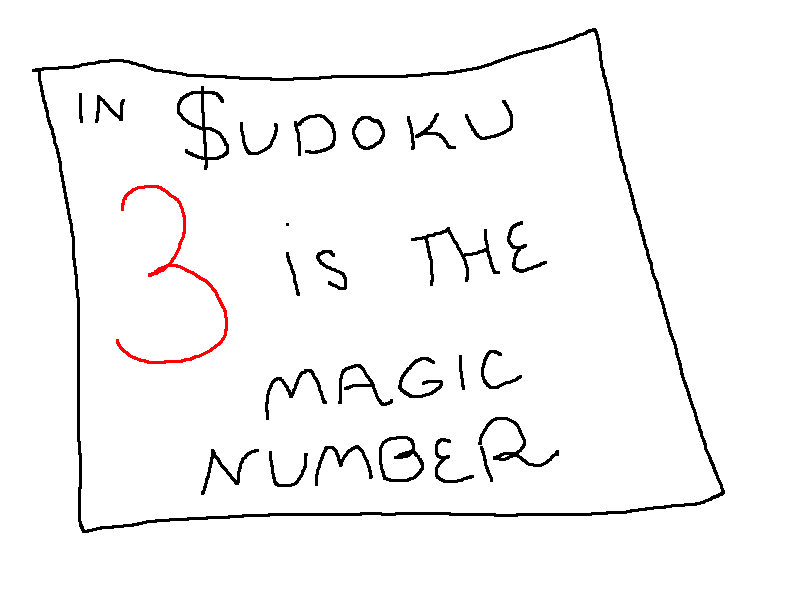 IN $UDOKU
3 is THE
MAGIC
NUMBER